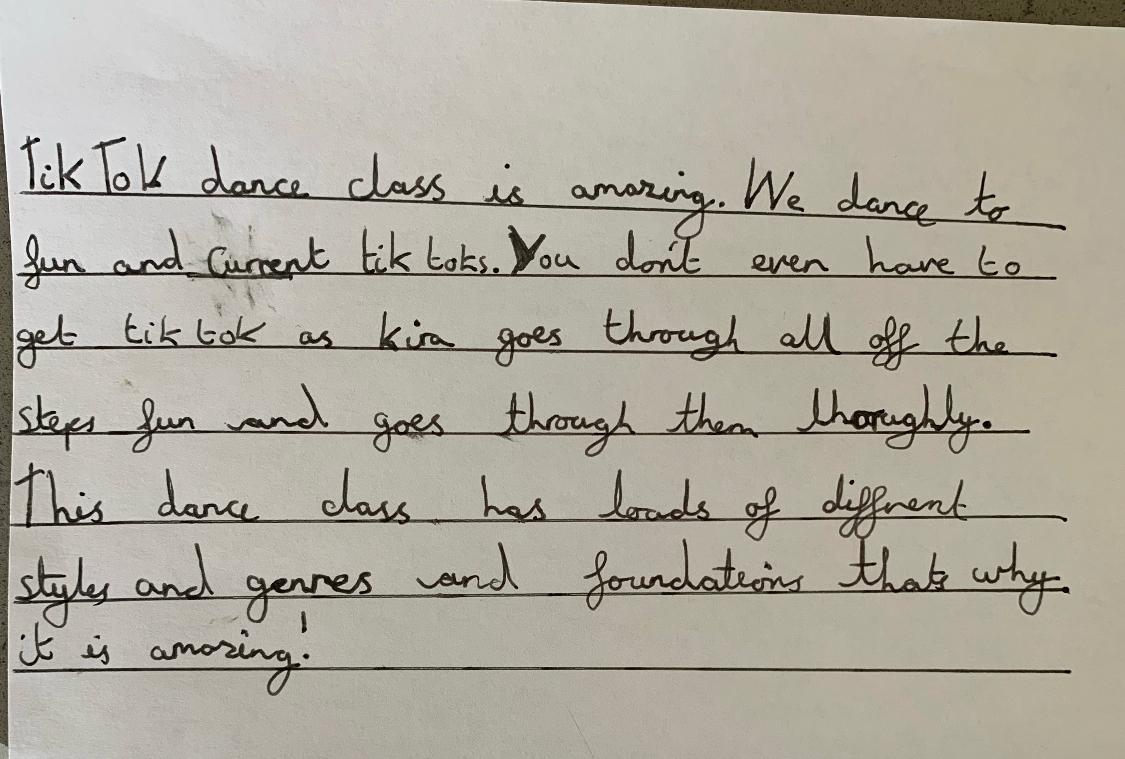 TikTok dance class is amazing. We dance to
fun and current tik toks. You don't even have to
get tik tok as kira goes through all off the
steps fun and goes through them thoroughly.
This dance class has loads of diffrent
styles and genres and foundations thats why
it is amazing!